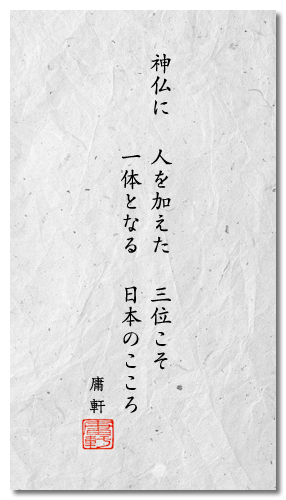 神仏に　人を加えた　三位こそ
一体となる　日本のこころ
庸軒